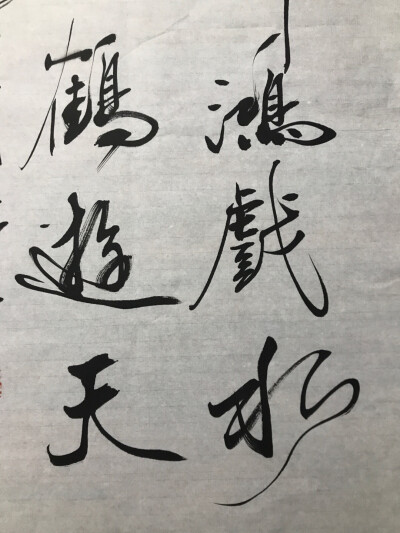 鴻戲水
鶴遊天